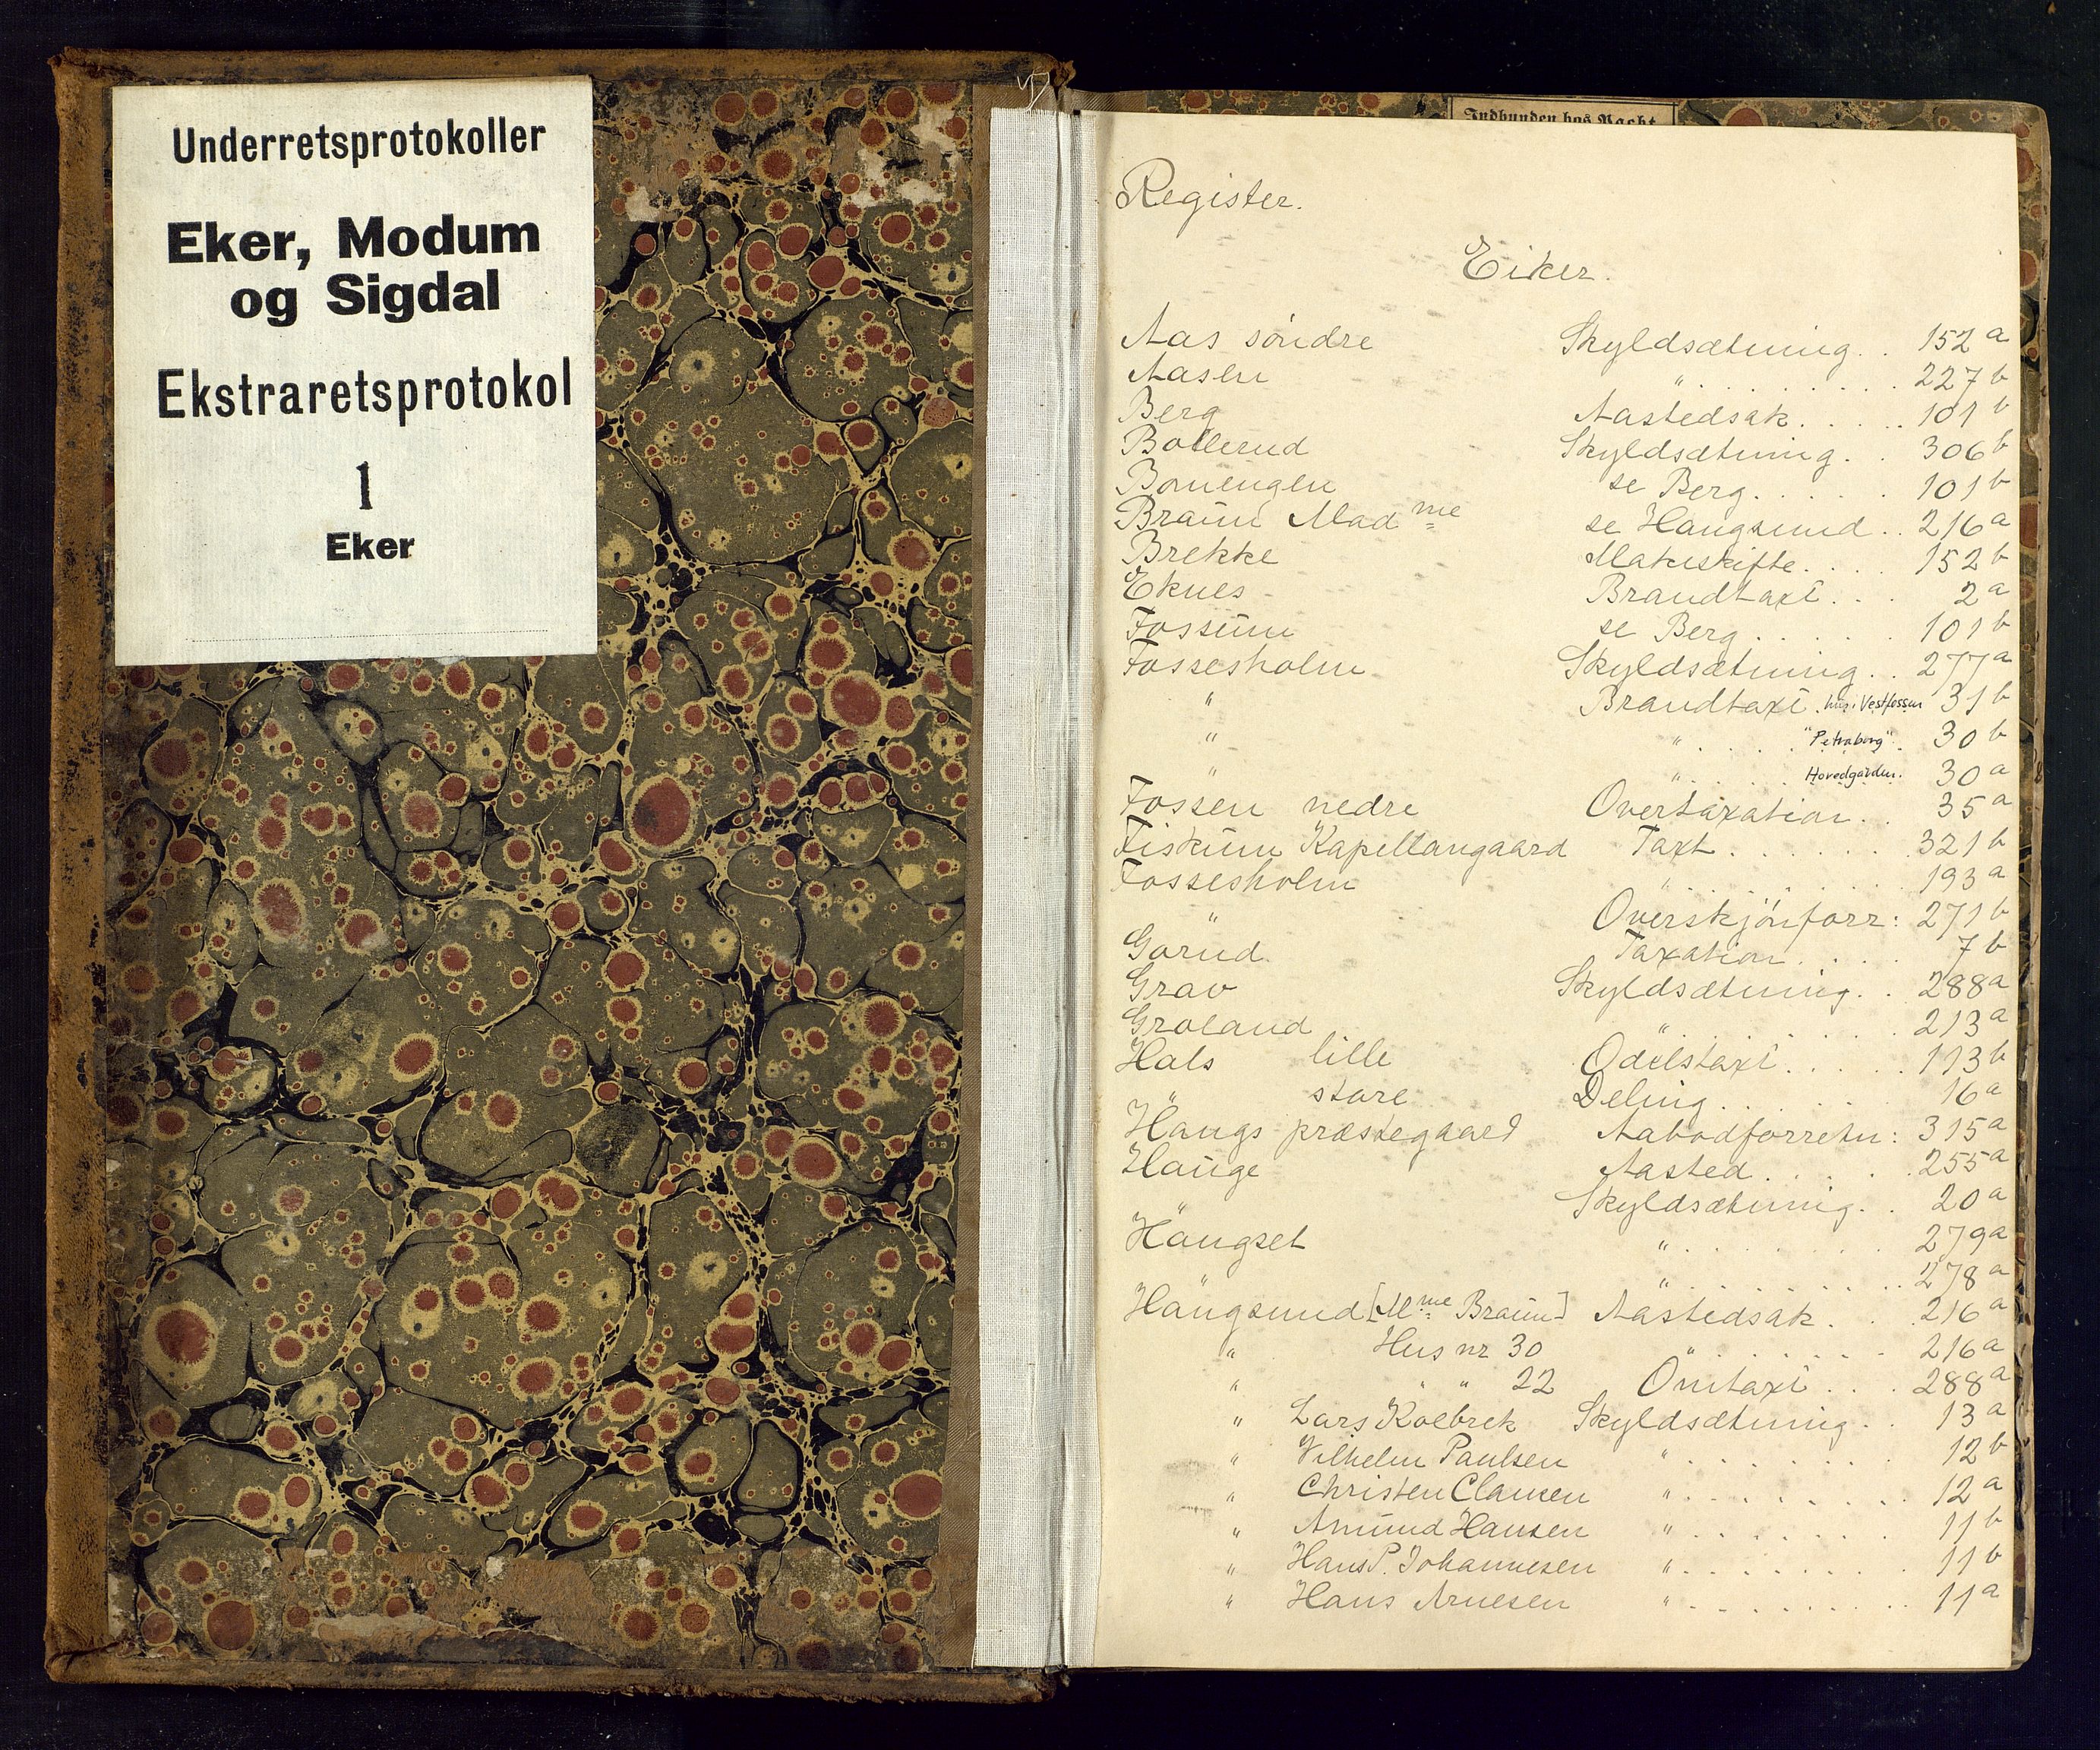 Underretsprotokoller
Eker, Modum
og Sigdal
Ekstraretsprotokol
1
Eker
Indbunden hos Bacht
Register.
Eiker.
Aas söndre Skyldsætning. . 152 a
Aasen " . . . . . . . . . 227 b
Berg Aastedsak. . . . . 101 b
Bollerud Skyldsætning. . 306 b
Bonengen se Berg. . . . . 101 b
Braun Mad me se Haugsund. . 216 a
Brekke Makeskifte. . . . 152 b
Eknes Brandtaxt. . . 2 a
Fossum se Berg. . . . . 101 b
Fossesholm Skyldsætning. . 277 a
" Brandtaxt. hus i Vestfossen 31 b
" " . . . . "Petraborg". 30 b
" " . . . . Hovedgården. 30 a
Fossen nedre Overtaxation. . 35 a
Fiskum Kapellangaard Taxt. . . . . . . 321 b
Fossesholm " . . . . . . . . 193 a
" Overskjönforr: 271 b
Gorud Taxation. . . . 7 b
Grav Skyldsætning. . 288 a
Groland " . . . . . . . . 213 a
Hals lille Odelstaxt. . . . . 113 b
" store Deling. . . . . . 16 a
Haugs præstegaard Aabodforretn: 315 a
Hauge Aasted. . . . . 255 a
" Skyldsætning. . 20 a
Haugset " . . . . . . . . 279 a
" " . . . . . . . . 278 a
Haugsund [Mme Braun] Aastedsak. . . 216 a
" Hus nr 30 " . . . . . . . 216 a
" " " 22 Omtaxt. . . . 288 a
" Lars Kolbrek Skyldsætning. . 13 a
" Vilhelm Paulsen " . . . . . . . 12 b
" Christen Clausen " . . . . . . . . 12 a
" Amund Hansen " . . . . . . . 11 b
" Hans P. Johannesen " . . . . . . . . 11 b
" Hans Arnesen " . . . . . . . . 11 a